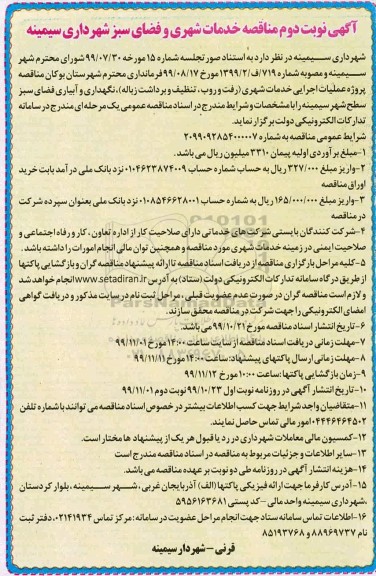 آگهی نوبت دوم مناقصه خدمات شهری و فضای سبز شهرداری سیمینه
شهرداری سیمینه در نظر دارد به استناد صورتجلسه شماره ۱۵ مورخه ۹۹/۰۷/۳۰ شورای محترم شهر
سیمینه و مصوبه شماره ۷۱۹/ف/۱۳۹۹/۲ مورخ ۹۹/۰۸/۱۷ فرمانداری محترم شهرستان بوکان مناقصه
پروژه عملیات اجرایی خدمات شهری (رفت و روب، تنظیف و برداشت زباله)، نگهداری و آبیاری فضای سبز
سطح شهر سیمینه را با مشخصات و شرایط مندرج در اسناد مناقصه عمومی یک مرحله‌ای مندرج در سامانه
تدارکات الکترونیکی دولت برگزار نماید.
شرایط عمومی مناقصه به شماره ۲۰۹۹۰۹۲۸۵۴۰۰۰۰۰۷
۱-مبلغ برآوردی اولیه پیمان ۳۳۱۰ میلیون ریال می باشد.
۲-واریز مبلغ ۳۲۷/۰۰۰ ریال به حساب شماره حساب ۰۱۰۴۶۲۳۸۷۴۰۰۹ نزد بانک ملی درآمد بابت خرید
اوراق مناقصه
۳-واریز مبلغ ۱۶۵/۰۰۰/۰۰۰ ریال به شماره حساب ۰۱۰۸۵۴۶۶۲۸۰۰۱ نزد بانک ملی بعنوان سپرده شرکت
در مناقصه
۴-شرکت کنندگان بایستی شرکت های خدماتی دارای صلاحیت کار از اداره تعاون، کار و رفاه اجتماعی و
صلاحیت ایمنی در زمینه خدمات شهری مورد مناقصه و همچنین توان مالی انجام امورات را داشته باشد.
۵-کلیه مراحل بارگزاری مناقصه از دریافت اسناد مناقصه تا ارائه پیشنهاد مناقصه گران و بازگشایی پاکتها
از طریق درگاه سامانه تدارکات الکترونیکی دولت (ستاد) به آدرس www.setadiran.ir انجام خواهد شد
و لازم است مناقصه گران در صورت عدم عضویت قبلی، مراحل ثبت نام در سایت مذکور و دریافت گواهی
امضای الکترونیکی را جهت شرکت در مناقصه محقق سازند.
۶-تاریخ انتشار اسناد مناقصه مورخ ۹۹/۱۰/۲۱ می باشد.
۷-مهلت زمانی دریافت اسناد مناقصه از سایت ساعت ۱۴:۰۰ مورخ ۹۹/۱۱/۰۱
۸-مهلت زمانی ارسال پاکتهای پیشنهاد: ساعت ۱۴:۰۰ مورخ ۹۹/۱۱/۱۱
۹-زمان بازگشایی پاکتها: ساعت ۱۰:۰۰ مورخ ۹۹/۱۱/۱۲
۱۰-تاریخ انتشار آگهی در روزنامه نوبت اول ۹۹/۱۰/۲۳ نوبت دوم ۹۹/۱۱/۰۱
۱۱-متقاضیان واجد شرایط جهت کسب اطلاعات بیشتر در خصوص اسناد مناقصه می توانند با شماره تلفن
۰۴۴۴۶۴۶۴۵۰۲ امور مالی تماس حاصل نمایند.
۱۲-کمسیون مالی معاملات شهرداری در رد یا قبول هر یک از پیشنهاد ها مختار است.
۱۳-سایر اطلاعات و جزئیات مربوط به مناقصه در اسناد مناقصه مندرج است
۱۴-هزینه انتشار آگهی در روزنامه طی دو نوبت بر عهده مناقصه می باشد.
۱۵-آدرس کارفرما جهت ارائه فیزیکی پاکتها (الف) آذربایجان غربی، شهر سیمینه، بلوار کردستان
،شهرداری سیمینه واحد مالی-کد پستی ۵۹۵۶۱۶۳۶۸۱
۱۶-اطلاعات تماس سامانه ستاد جهت انجام مراحل عضویت در سامانه: مرکز تماس ۰۲۱۴۱۹۳۴، دفتر ثبت
نام ۸۸۹۶۹۷۳۷ و ۸۵۱۹۳۷۶۸
قرنی-شهردار سیمینه